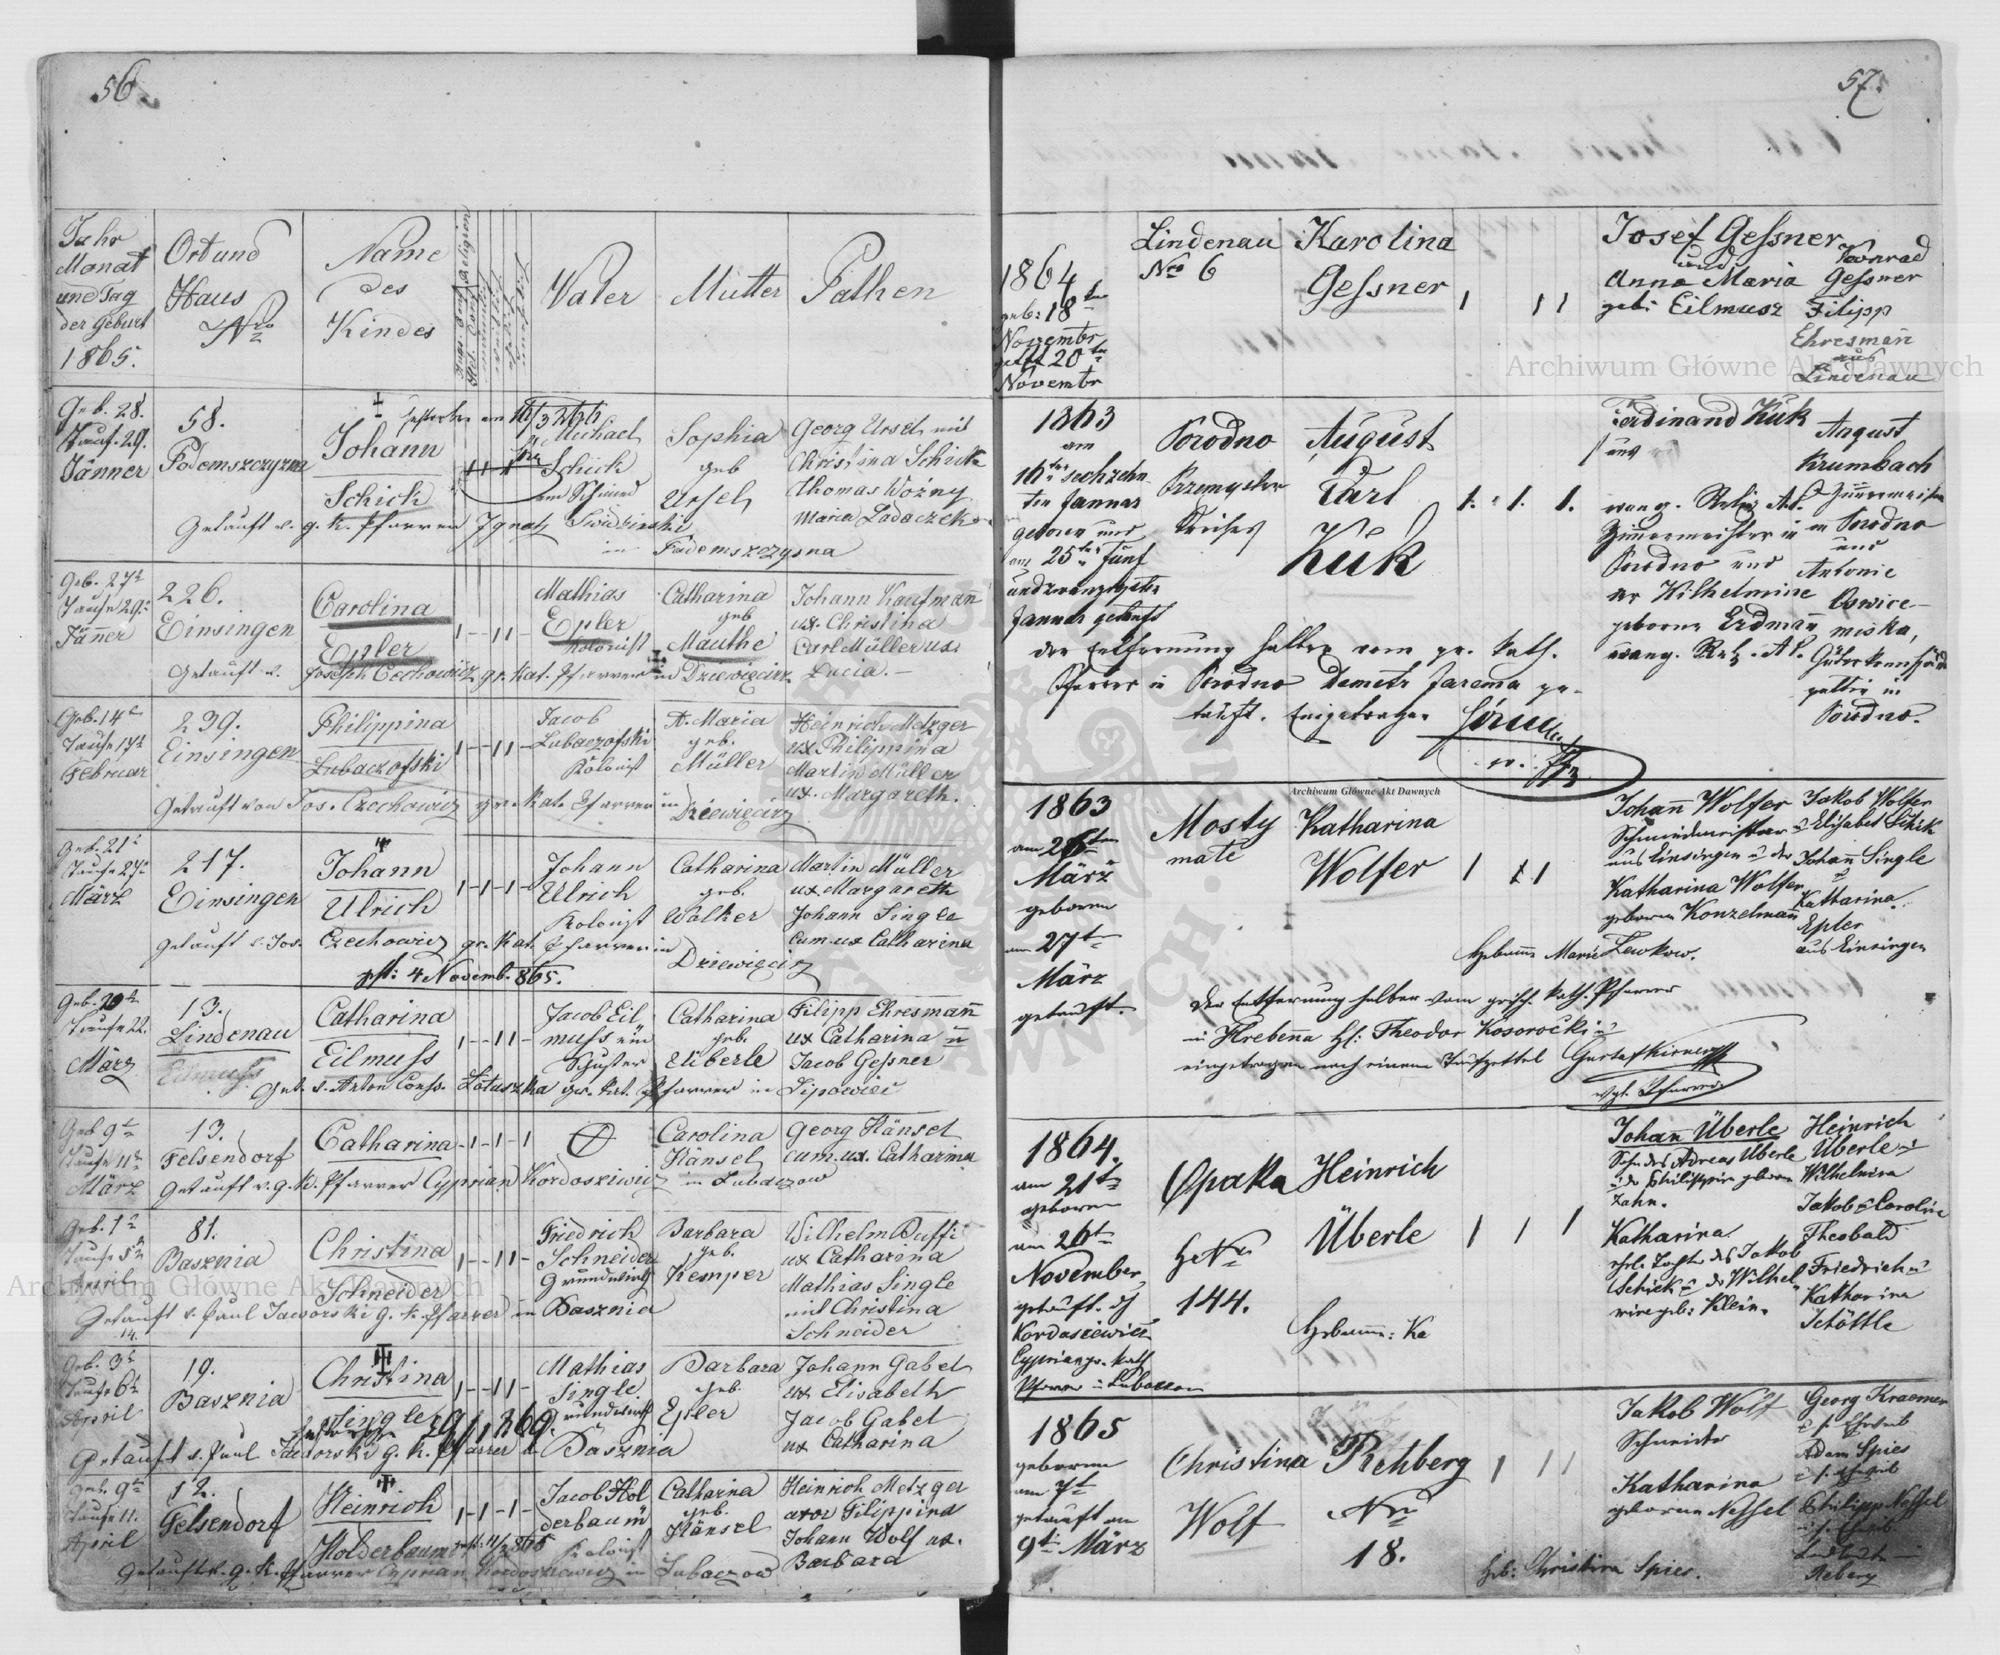 56
Jahr
Monat
und Tag
der Geburt
1865.
Ort und
Haus
Nro
Name
des
Kindes
Religion
Vater
Mutter
Pathen
Geb. 28.
Tauf. 29.
Jänner
58.
Podemszczyzna
gestorben am
Johann
Schick
Michael
Schick
Sophia
geb
Ursel
Georg Ursel mit
Christina Schick
Thomas Woźny
Maria Ladaczek
Getauft v. g. k. Pfarrer Ignatz Swidzinski
in Podemszczysna
Geb. 27t
Taufe 29t
Jänner
226.
Einsingen
Carolina
Epler
Mathias
Epler
Kolonist
Catharina
geb
Mauthe
Johann Kaufmann
ux. Christina
Carl Müller ux.
Lucia.
Getauft v. Joseph Czechowicz gr. kat. Pfarrer in Dziewięcirz
Geb. 14t
Taufe 17t
Februar
239.
Einsingen
Philippina
Lubaczofski
Jacob
Lubaczofski
Kolonist
A. Maria
geb.
Müller
Heinrich Metzger
ux Philippina
Martin Müller
ux. Margareth.
Getauft von Jos. Czechowicz gr. kat. Pfarrer in Dziewięcirz
Geb. 21t
Taufe 27t
März
217.
Einsingen
Johann
Ulrich
Johann
Ulrich
Kolonist
Catharina
geb.
Walker
Martin Müller
ux Margareth
Johann Single
cum ux Catharina
getauft v. Jos. Czechowicz gr. kat. Pfarrer in Dziewięcirz
gst: 4 Novemb. 865.
Geb. 20t
Taufe 22.
März
13.
Lindenau
Eilmuss
Catharina
Eilmuss
Jacob Eil
muss ein
Schuster
Catharina
geb.
Überle
Filipp Ehresmann
ux Catharina u
Jacob Gessner
Get. v. Anton Lotuszka gr. kat. Pfarrer in Lipowiec
Geb 9t
Taufe 11t
März
13.
Felsendorf
Catharina
Carolina
Hänsel
Georg Hänsel
cum. ux. Catharina
Getauft v. g. k. Pfarrer Cyprian Kordosziewicz in Lubaczow
Geb. 1t
Taufe 5t
April
81.
Basznia
Christina
Schneider
Friedrich
Schneider
Grundwirth
Barbara
geb.
Kemper
Wilhelm Duffi
ux Catharina
Mathias Single
mit Christina
Schneider
Getauft v. Paul Jaworski g. k. Pfarrer in Basznia
14.
Geb. 3t
Taufe 6t
April
19.
Basznia
Christina
Single
Mathias
Single
Grundwirth
Barbara
geb.
Epler
Johann Gabel
ux Elisabeth
Jacob Gabel
ux Catharina
Getauft v. Paul Jaworski g. k. Pfarrer in Basznia
Geb. 9t
Taufe 11.
April
12.
Felsendorf
Heinrich
Holderbaum
Jacob Hol
derbaum
Kolonist
Catharina
geb.
Hänsel
Heinrich Metzger
uxor Filippina
Johann Wolf ux.
Barbara
Getauft v. g. k. Pfarrer Cyprian Kordosziewicz in Lubaczow
57.
1864
geb: 18ten
Novembr
getft 20ten
Novembr
Lindenau
Nro 6
Karolina
Gessner
Josef Gessner
und
Anna Maria
geb: Eilmusz
Konrad
Gessner
Filipp
Ehresmann
aus
Lindenau
1863
am
16ten sechzehn
ten Januar
geboren und
am 25ten fünf
undzwanzigsten
Januar getauft
Brodno
Przemysler
Kreises
August
Carl
Kuk
Ferdinand Kuk
evang. Relig. A.C.
Zimmermeister in
Brodno und
der Wilhelmine
geborne Erdmann
evang. Rel. A.C.
August
Krumbach
Zimmermeister
in Brodno
und
Antonie
Oswice-
miska,
in
Brodno.
der Entfernung halber vom gr. kath.
Pfarrer in Brodno Demetr Jarema ge-
tauft. Eingetragen
1863
am 26ten
März
geboren
am 27t
März
getauft.
Mosty
mate
Katharina
Wolfer
Johann Wolfer
Schmiedmeister
aus Einsingen u der
Katharina Wolfer
geborne Konzelmann
Jakob Wolfer
u Elisabet Schik
Johann Single
u
Katharina
Epler
aus Einsingen
Hebamme Marie Lewkow.
Der Entfernung halber vom griech. kath. Pfarrer
in Hrebenna H: Theodor Kosorocki
eingetragen nach einem Taufzettel Gustaf
Pfarrer
1864.
am 21t
geboren
am 26t
November
getauft. dch
Kordasiewicz
Cyprian gr. kath
Pfarrer in Lubaczow
Opaka
HsNro
144.
Heinrich
Überle
Hebamme: Ka
Johann Überle
Sohn des Adreas Überle
u der Philippine geborne
Zahn.
Katharina
ehl. Tochter des Jakob
Schick u der Wilhel
mine geb: Klein.
Heinrich
Überle u
Wilhelmina
Jakob u Caroline
Theobald
Friedrich u
Katharina
Schöttle
1865
geboren
am 7t
getauft am
9t März
Christina
Wolf
Rehberg
Nro
18.
Jakob Wolf
Schneider
Katharina
geborne Nessel
Georg Kraemer
Adam Spies
Philipp Nessel
Reberg
Heb: Christina Spies.
Archiwum Główne Akt Dawnych
Archiwum Główne Akt Dawnych
Archiwum Główne Akt Dawnych